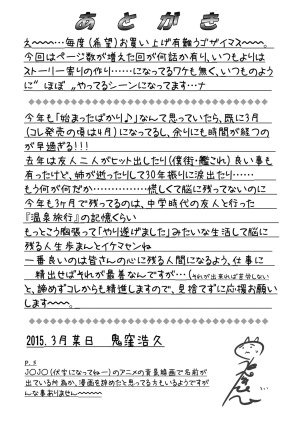 あとがき
え〜〜〜…毎度(希望)お買い上げ有難うゴザイマス〜〜〜。
今回はページ数が増えた回が何話か有り、いつもよりは
ストーリー寄りの作り……になってるワケも無く、いつものよう
に“ほぼ”ヤってるシーンになってます…ナ
今年も「始まったばかり♪」なんて思っていたら、既に3月
(コレ発売の頃は4月)になってるし、余りにも時間が経つの
が早過ぎる!!!
去年は友人二人がヒット出したり(僕街・艦これ)良い事も
有ったけど、姉が逝ったりして30年振りに涙出たり……
もう何が何だか……………慌しくて脳に残ってないのに
今年も3ヶ月で残ってるのは、中学時代の友人と行った
『温泉旅行』の記憶くらい
もっとこう胸張って「やり遂げました」みたいな生活して脳に
残る人生歩まんとイケマセンね
一番良いのは皆さんの心に残る人間になるよう、仕事に
精出せばそれが最善なんですが…(それが出来れば苦労しない)
と、諦めずコレからも精進しますので、見捨てずに応援お願い
します〜〜〜。
2015.3月某日 鬼窪浩久
P.S
JOJO(伏字になってねー)のアニメの背景絵画で名前が
出ている所為か、漫画を辞めたと思ってる方もいるようですが
んな事ありません〜〜〜〜